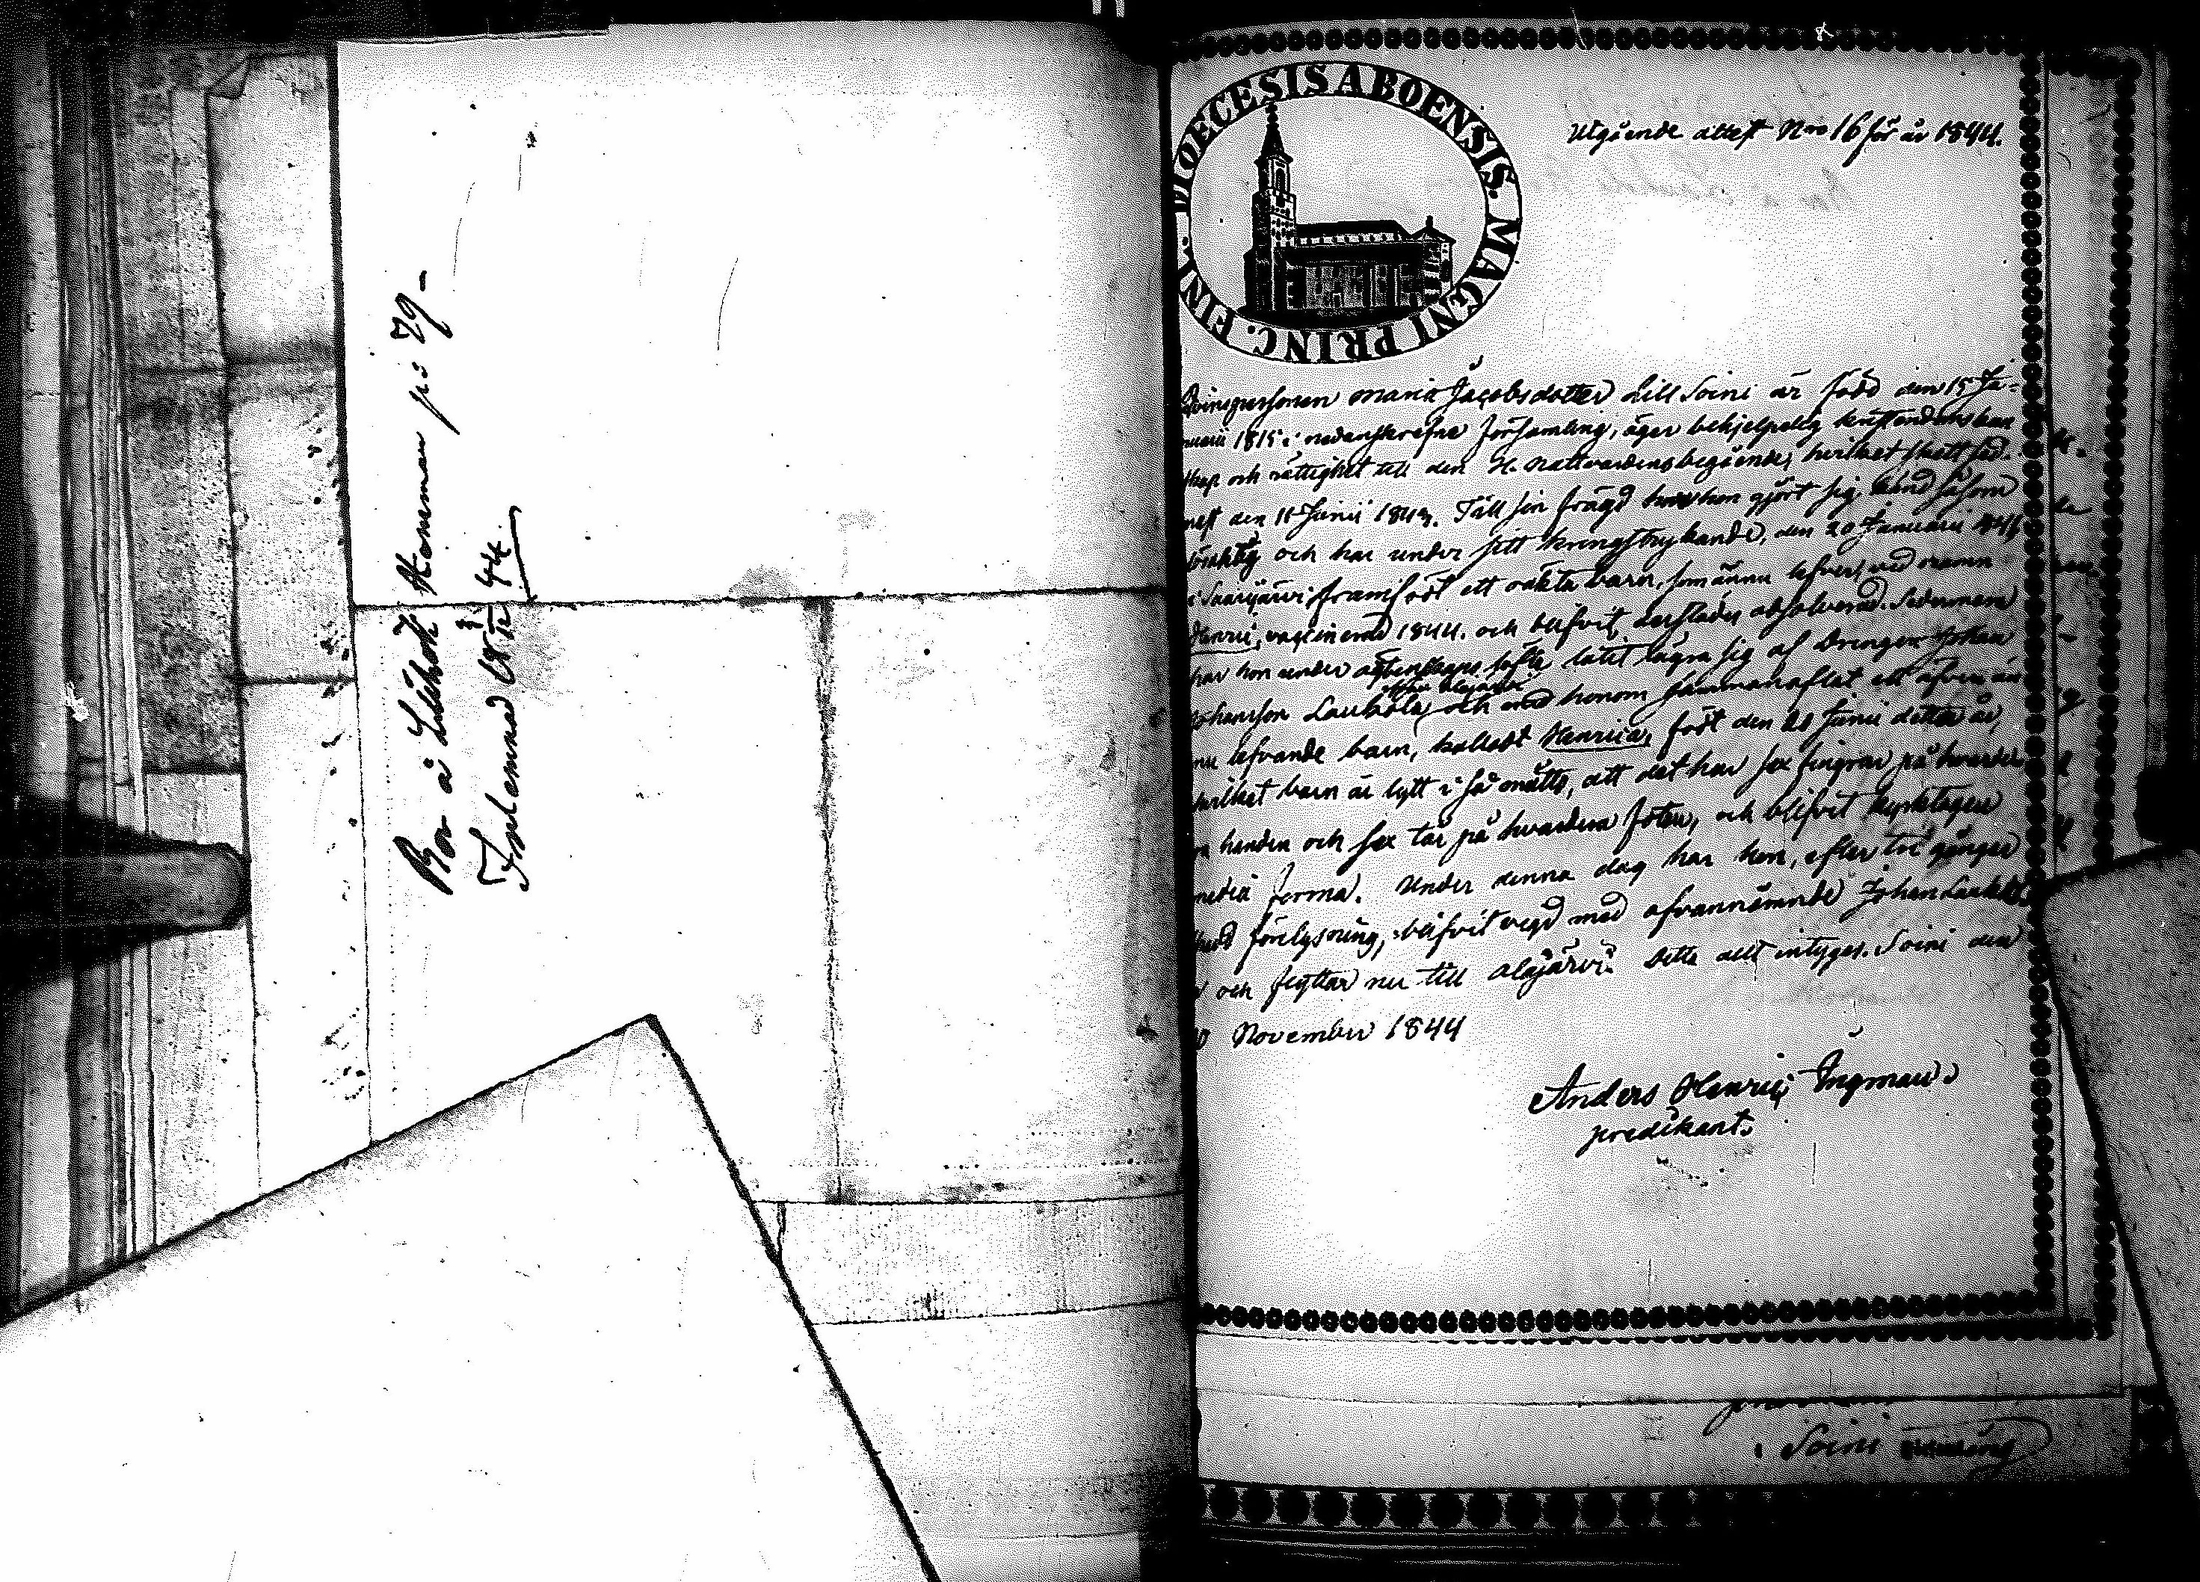 Bor å Lillstok Storeman på 79 –
Inlemnad 18 44
DIOECESIS ABOENSIS. MAGNI PRINC. FINL.
Utgående attest Nro 16 för år 1844.
Qvinspersonen Maria Jacobsdotter Lill Soini är född den 15 Ja-
nuarii 1815 i nedanskrefne Församling, äger behjelpelig kristendoms kun
skap och rättighet till den H. Nattvardens begående, hvilket skett sed-
nast den 11 Junii 1843. Till sin frägd har hon gjort sig känd såsom
och har under sitt kringstrykande, den 20 Januarii 1841
i Saarijärvi framfödt ett oäkta barn, som ännu lefver, vid namn
Henric, vaccinerad 1844. och blifvit derstädes absolverad. Sedermera
har hon under äktenskaps löfte låtit lägra sig af Drengen Johan
Johansson Laukola, och med honom sammanaflat ett äfven än
nu lefvande barn, kalladt Henrica, födt den 28 Junii detta år,
hvilket barn är lytt i så måtto, att det har sex fingrar på hvarder
a handen och sex tår på hvardera foten, och blifvit kyrktagen
media forma. Under denna dag har hon, efter tre gånger
skedd förelysning, blifvit vigd med ofvannämnde Johan Laukola
och flyttar nu till Alajärvi. Detta allt intygas. Soini den
10 November 1844
Anders Henric Ingman.
predikant.
Soini